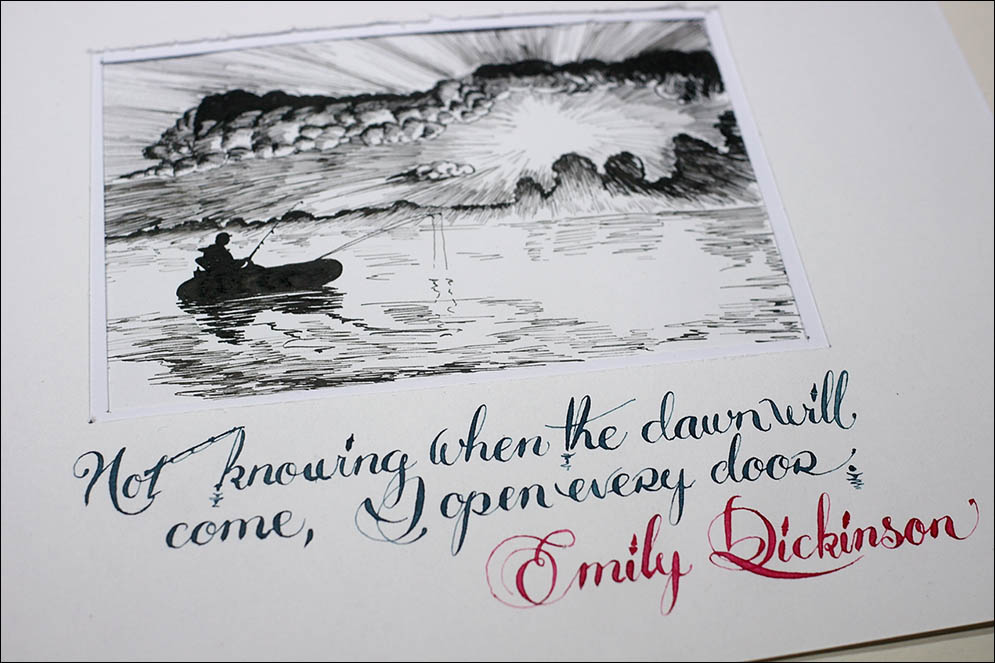 Not knowing when the dawn will
come, I open every door.
Emily Dickinson